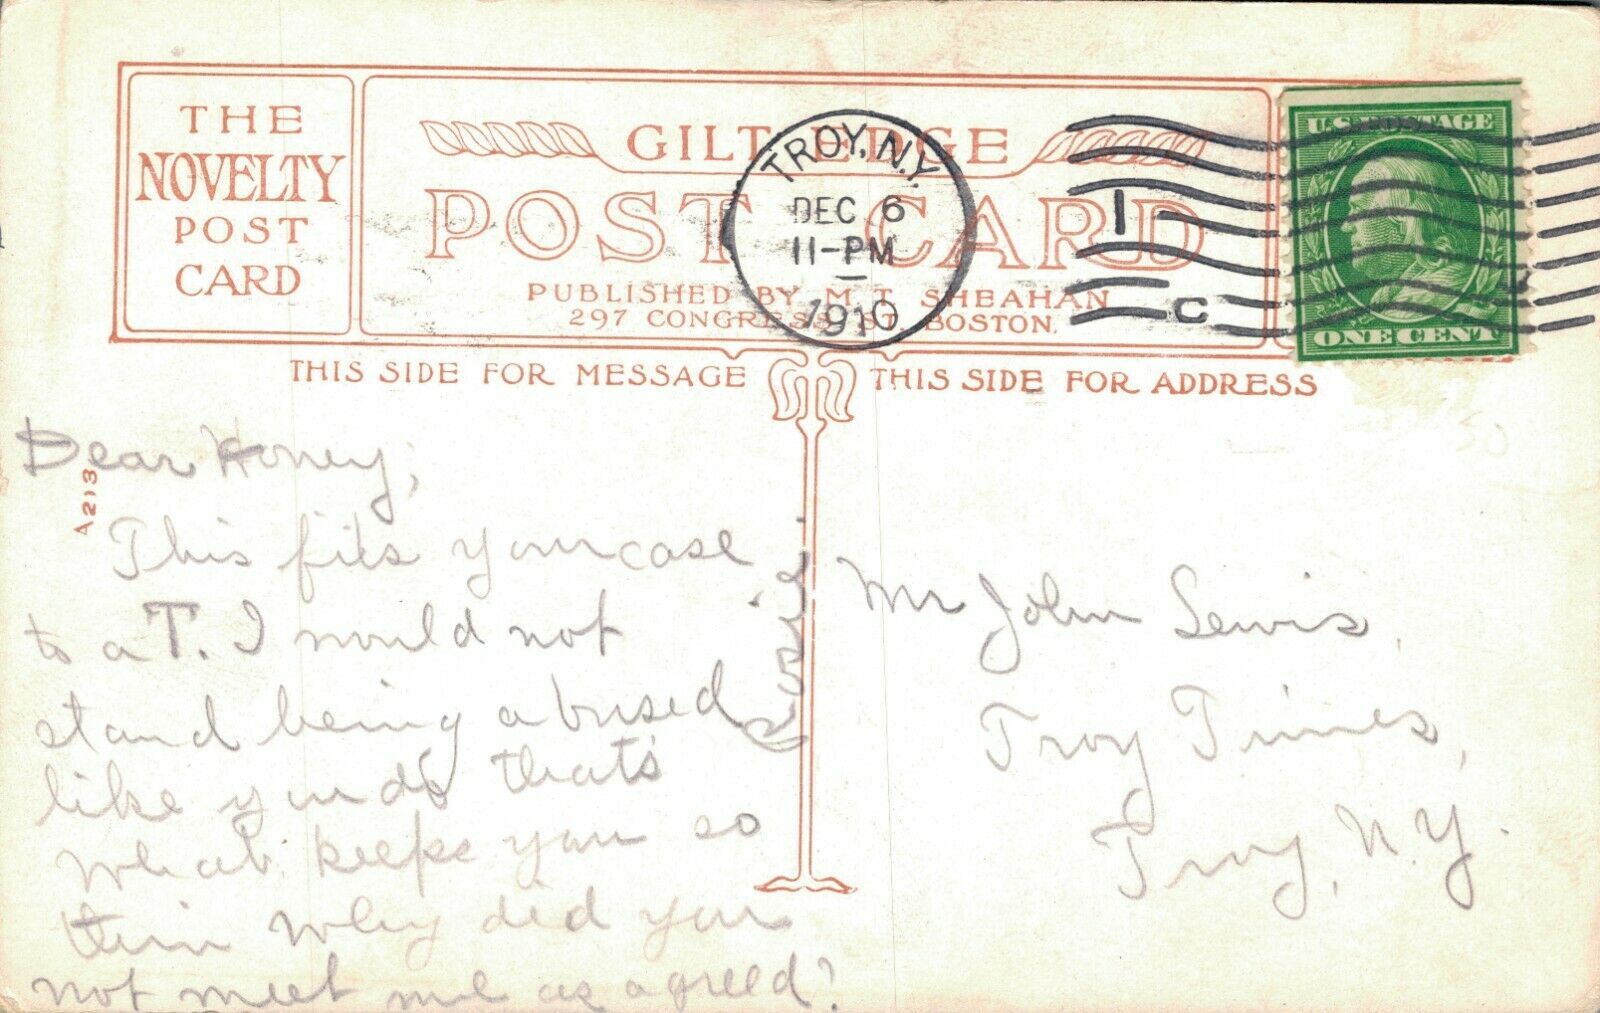 THE
NOVELTY
POST
CARD
GILT EDGE
POST CARD
PUBLISHED BY M. T. SHEAHAN
297 CONGRESS ST. BOSTON.
TROY, N.Y.
DEC 6
11-PM
1910
1
C
U.S. POSTAGE
ONE CENT
THIS SIDE FOR MESSAGE
THIS SIDE FOR ADDRESS
A213
Dear Honey,
This fits your case
to a T. I would not
stand being abused
like you do that's
what keeps you so
thin Why did you
not meet me as agreed?
Mr John Lewis,
Troy Times,
Troy, N.Y.